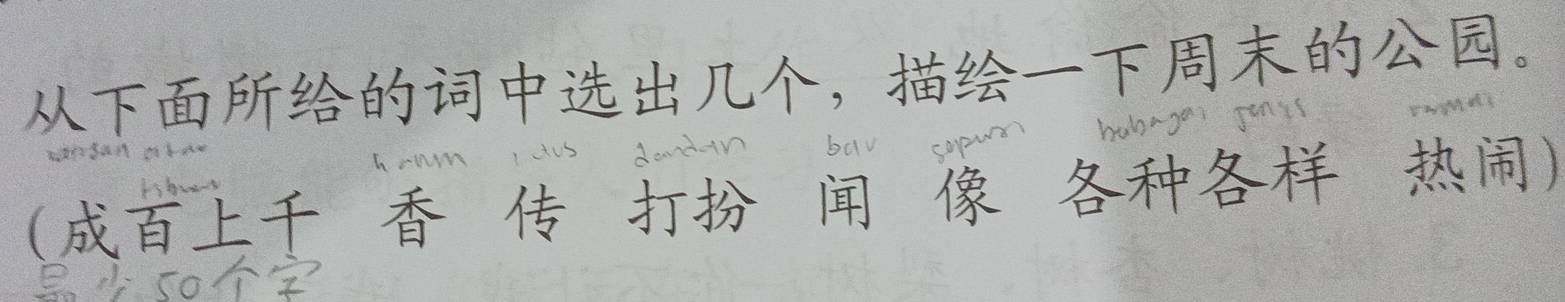 从下面所给的词中选出几个，描绘一下周末的公园。
harum dandan bau berbagai jenis ramai
（成百上千 香 传 打扮 闻 像 各种各样 热闹）
最少50个字